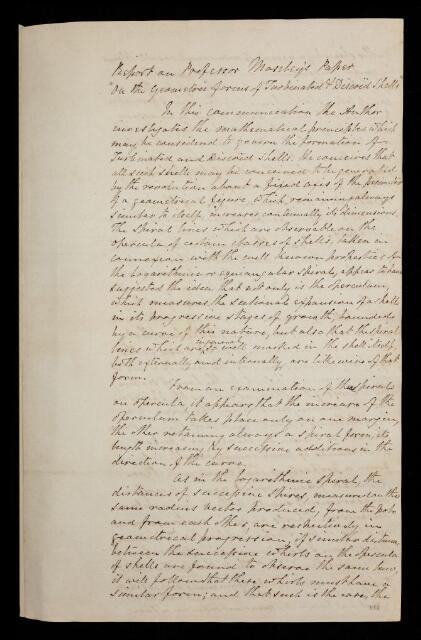 Report on Professor Moseley's Paper
"On the Geometric forms of Turbinated & Discoid Shells"
In this communication the Author
investigates the mathematical principles which
may be considered to govern the formation of
Turbinated and Discoid Shells. He conceives that
all such shells may be conceived to be generated
by the revolution about a fixed axis of the perimeter
of a geometrical figure, which remaining always
similar to itself increases continually its dimensions.
The spiral lines which are observable on the
opercula of certain classes of shells, taken in
connexion with the well known properties of
the Logarithmic or equiangular spiral, appear to have
suggested the idea that not only is the operculum,
which measures the sectional expansion of a shell
in its progressive stages of growth, bounded
by a curve of this nature, but also that the spiral
lines which are so well marked in the shell itself,
both externally and internally, are likewise of that
form.
From an examination of the spirals
on opercula, it appears that the increase of the
operculum takes place only on one margin,
the other retaining always a spiral form, its
length increasing by successive additions in the
direction of the curve.
As in the Logarithmic Spiral, the
distances of successive spires, measured on the
same radius vector produced, from the pole
and from each other, are respectively in
geometrical progression, if similar distances
between the successive whorls on the opercula
of shells are found to observe the same law,
it will follow that these whorls must have a
similar form; and that such is the case, the